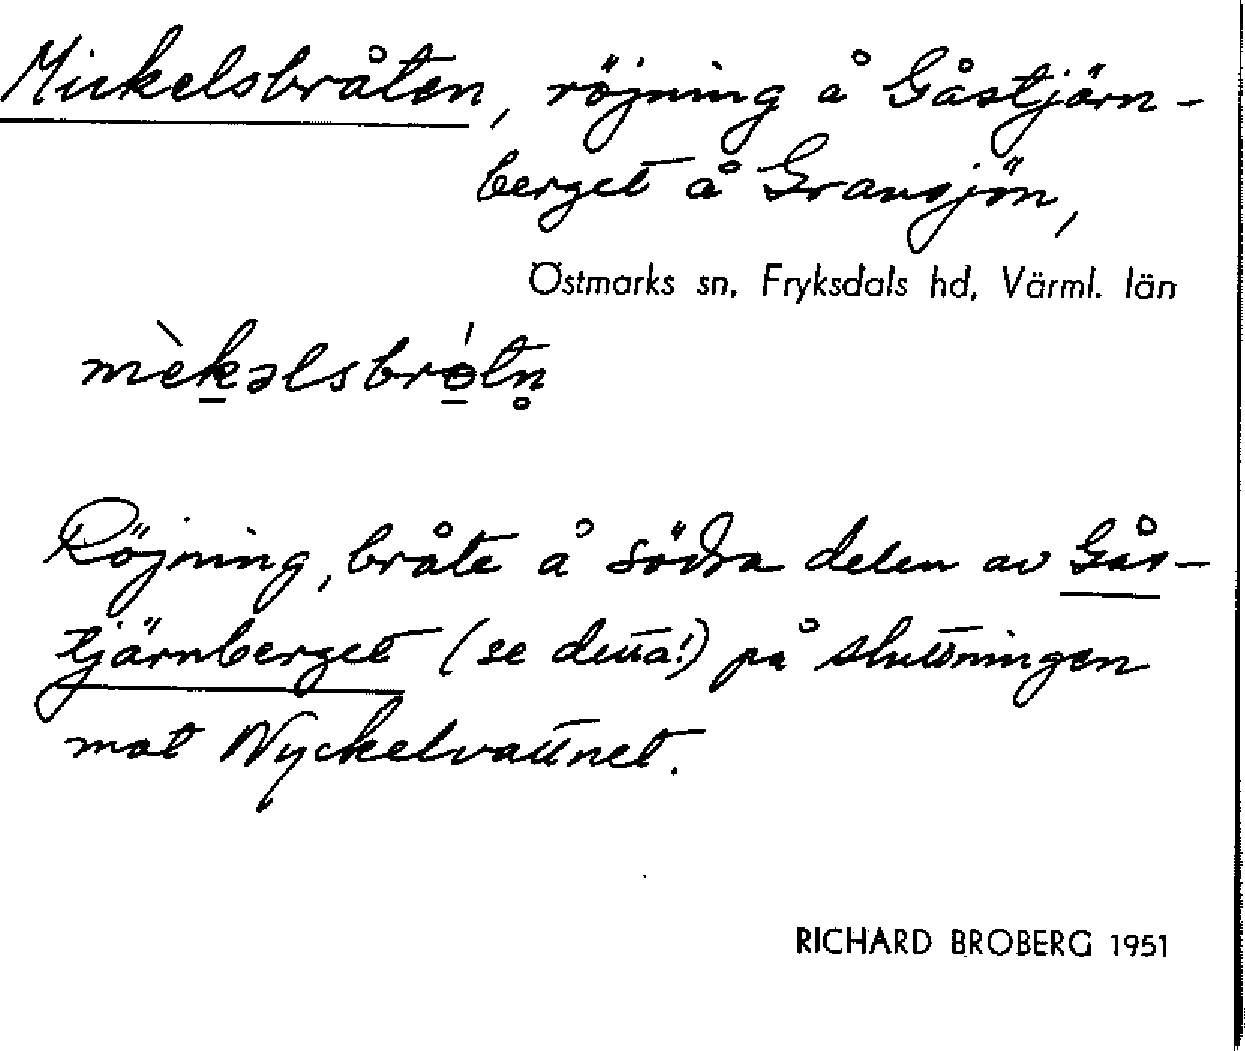 Mickelsbråten, röjning å Gåstjärn-
berget å Gransjön,
Östmarks sn, Fryksdals hd, Värml. län
mèkəlsbrǿ̲tn̥
Röjning, bråte å södra delen av Gås-
tjärnberget (se detta!) på sluttningen
mot Nyckelvattnet.
RICHARD BROBERG 1951